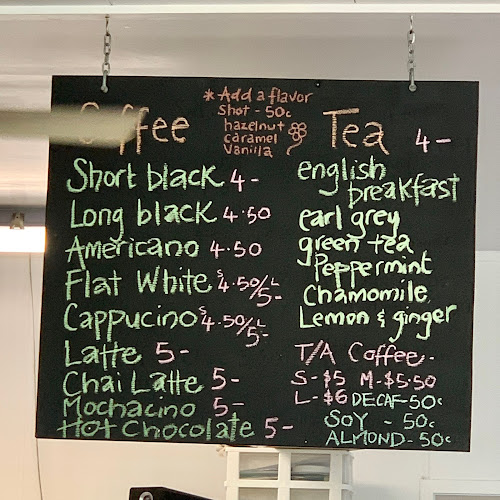 Coffee
Short black 4-
Long black 4.50
Americano 4.50
Flat White S 4.50/L 5-
Cappucino S 4.50/L 5-
Latte 5-
Chai Latte 5-
Mochacino 5-
Hot Chocolate 5-
* Add a flavor
Shot - 50c
hazelnut
caramel
Vanilla
Tea 4-
english
breakfast
earl grey
green tea
Peppermint
Chamomile
Lemon & ginger
T/A Coffee-
S-$5 M-$5.50
L-$6 DECAF-50c
SOY - 50c
ALMOND-50c